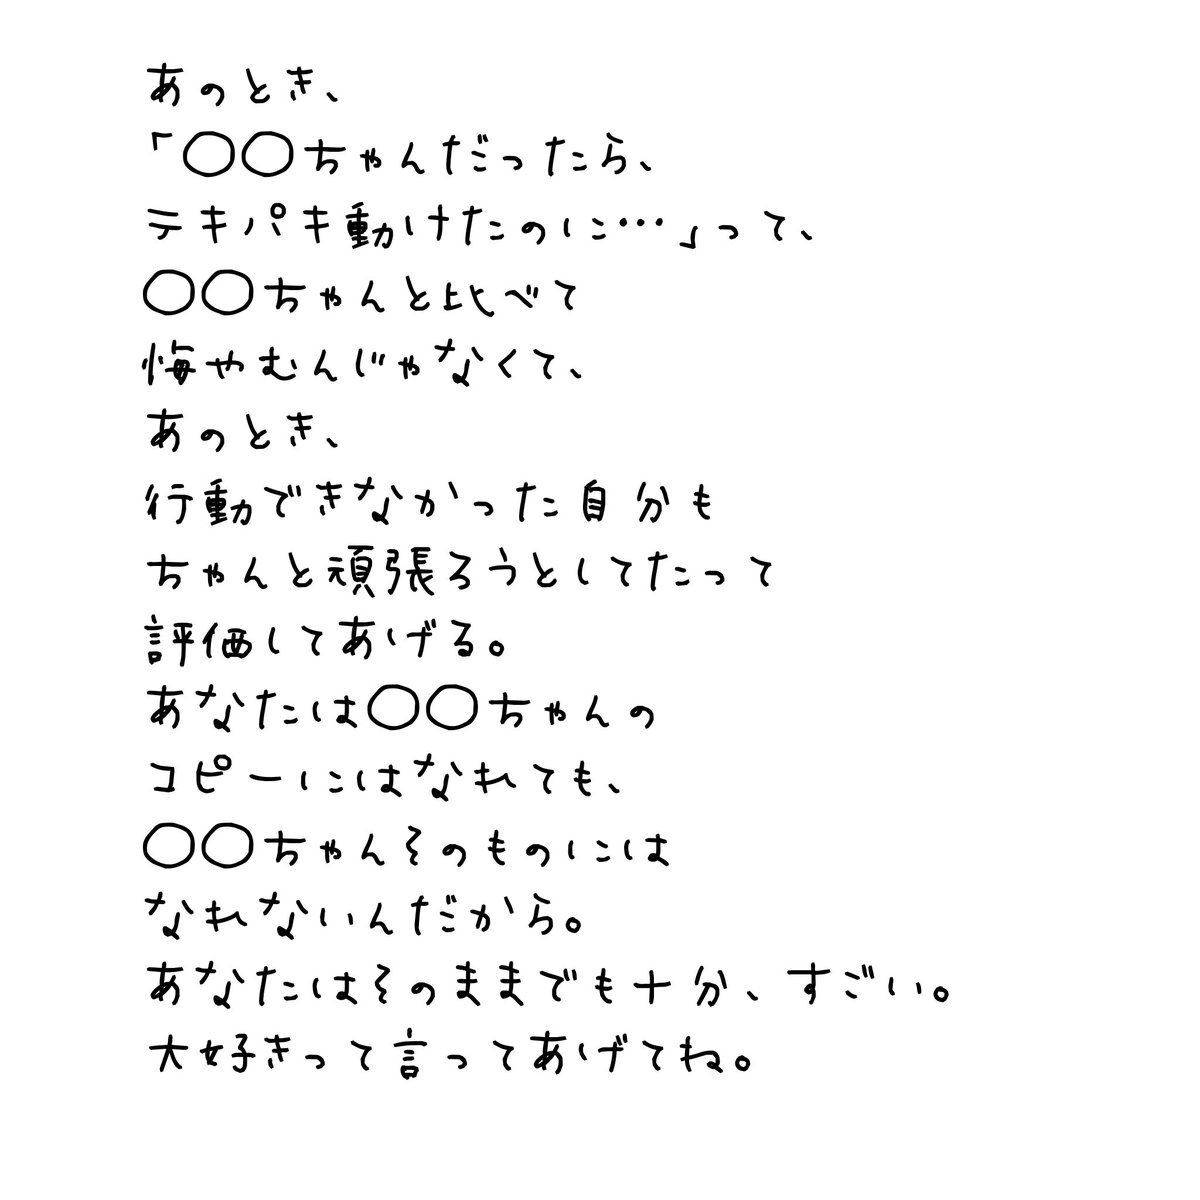 あのとき、
「○○ちゃんだったら、
テキパキ動けたのに…」って、
○○ちゃんと比べて
悔やむんじゃなくて、
あのとき、
行動できなかった自分も
ちゃんと頑張ろうとしてたって
評価してあげる。
あなたは○○ちゃんの
コピーにはなれても、
○○ちゃんそのものには
なれないんだから。
あなたはそのままでも十分、すごい。
大好きって言ってあげてね。